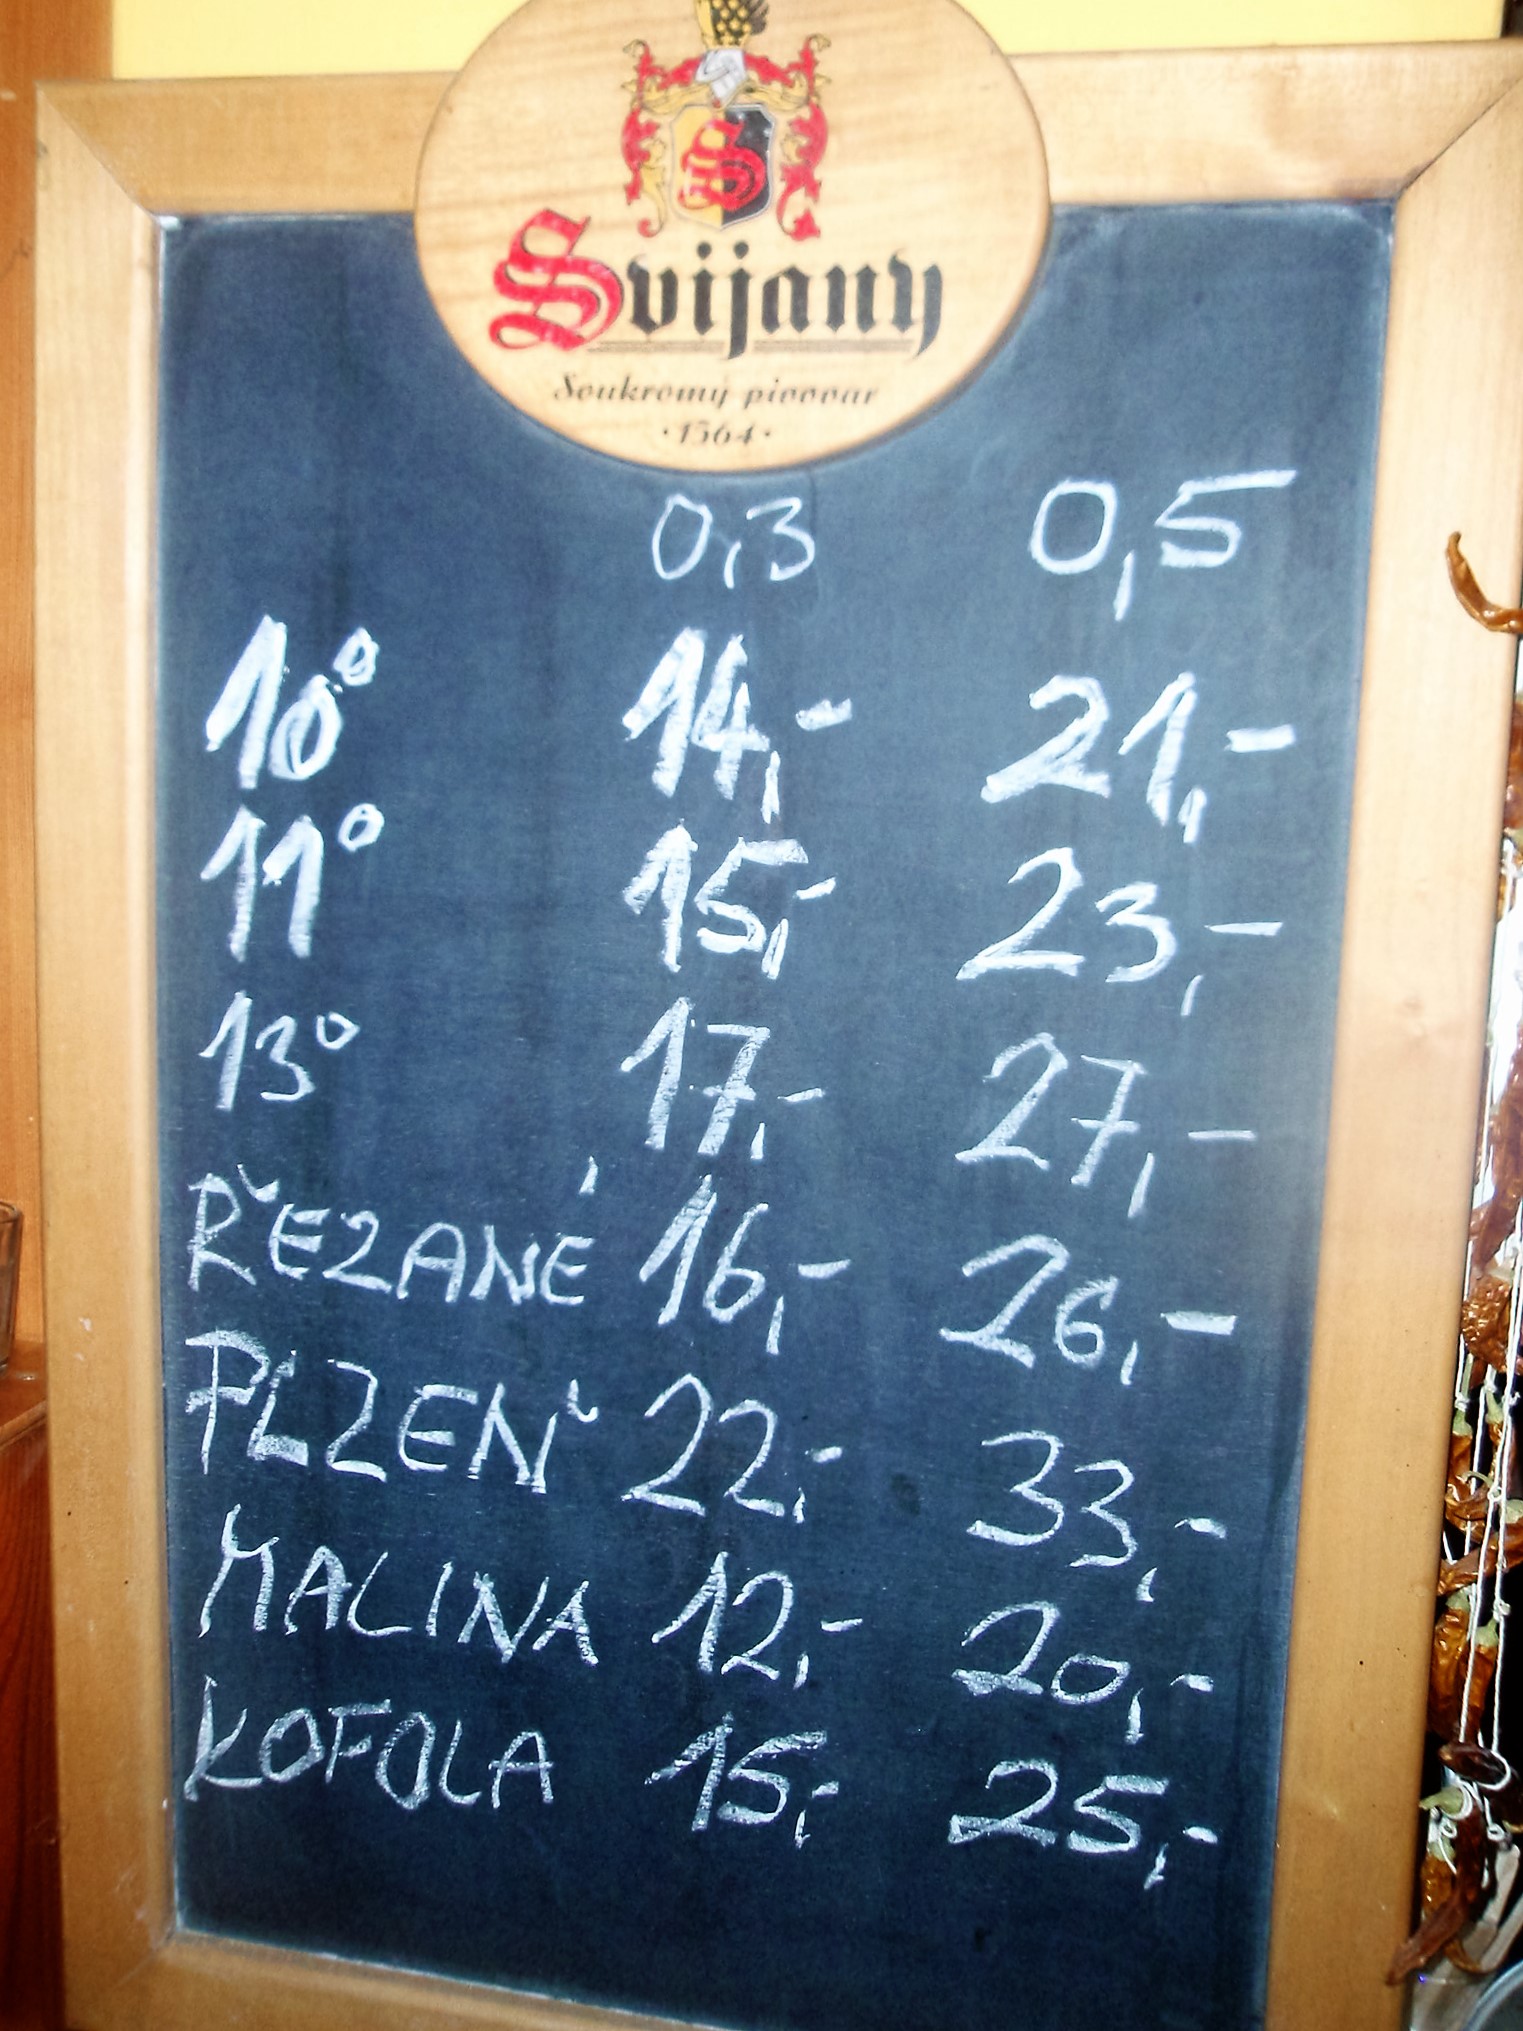 S
Svijany
Soukromý pivovar
·1564·
0,3 0,5
10° 14,- 21,-
11° 15,- 23,-
13° 17,- 27,-
ŘEZANÉ 16,- 26,-
PLZEŇ 22,- 33,-
MALINA 12,- 20,-
KOFOLA 15,- 25,-